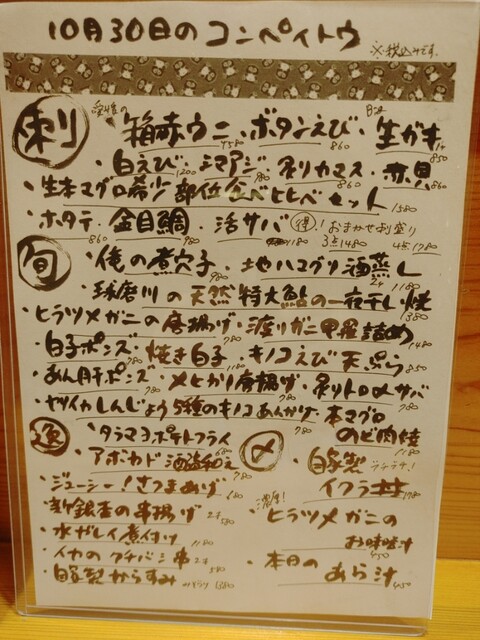 10月30日のコンペイトウ
※税込みです。
刺
箱赤ウニ 4580・ボタンえび 860・生ガキ 850
・白えび 1200・シマアジ 980・炙りカマス 860・赤貝 860
・生本マグロ希少部位食べヒヒベセット 1580
・ホタテ 860・金目鯛 980・活サバ 1180 得!おまかせ刺盛り 3点1480 4点1780
旬
・俺の煮穴子 980・地ハマグリ酒蒸し 1180
・球磨川の天然特大鮎の一夜干し焼 1380
・ヒラツメガニの唐揚げ 980・渡りガニ甲羅詰め 1480
・白子ポンズ 780・焼き白子 780・キノコえび天ぷら 850
・あん肝ポンズ 780・メヒカリ唐揚げ 780・炙りトロメサバ 780
・ヤリイカしんじょう5種のキノコあんかけ 780・本マグロのど肉焼 1180
逸
・タラマヨポテトフライ 680
・アボカド酒盗和え 780
・ジューシー!さつまあげ 680
・新銀杏の串揚げ 2本 580
・水ガレイ煮付け 1180
・イカのクチバシ串 2本 580
・自家製からすみ 1380
〆
・自家製イクラ丼 1780
濃厚!
・ヒラツメガニのお味噌汁 450
・本日のあら汁 450